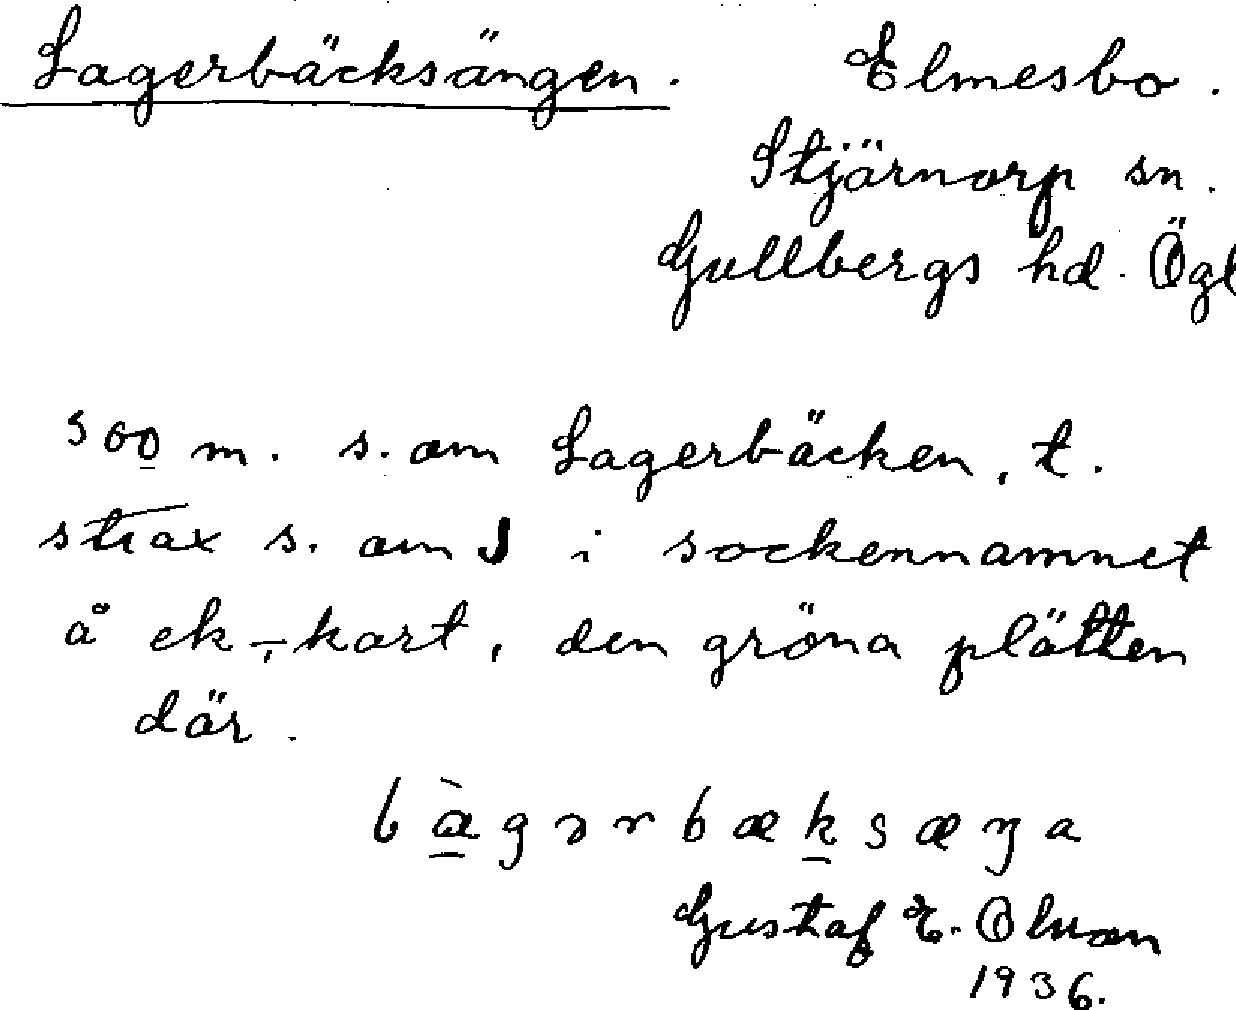 Lagerbäcksängen.
Elmesbo.
Stjärnorp sn.
Gullbergs hd. Ögl
300 m. s. om Lagerbäcken, t.
strax s. om J i sockennamnet
å ek-kart, den gröna plätten
där.
bàgərbæksæŋa
Gustaf E. Olsson
1936.